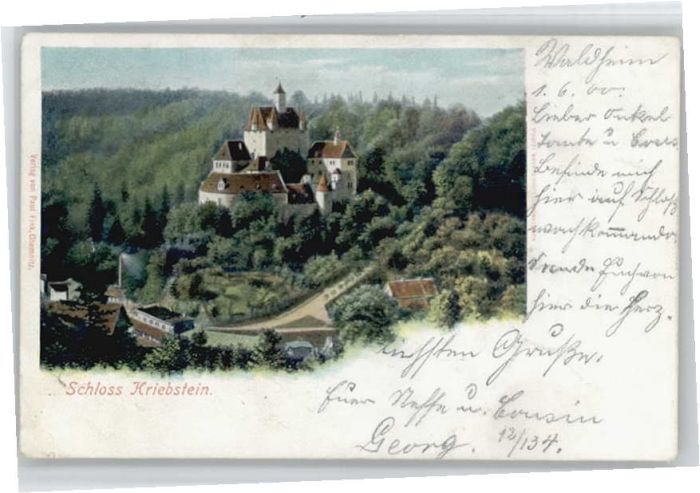 Waldheim
1. 6. 00.
Lieber Onkel
Tante u.
Befinde mich
hier auf Schloß
wachkommando
Sende Euch von
hier die Herz-
lichsten Grüße.
Euer Neffe u. Cousin
Georg. 12/134.
Schloss Kriebstein.
Verlag von Paul Fink, Chemnitz.